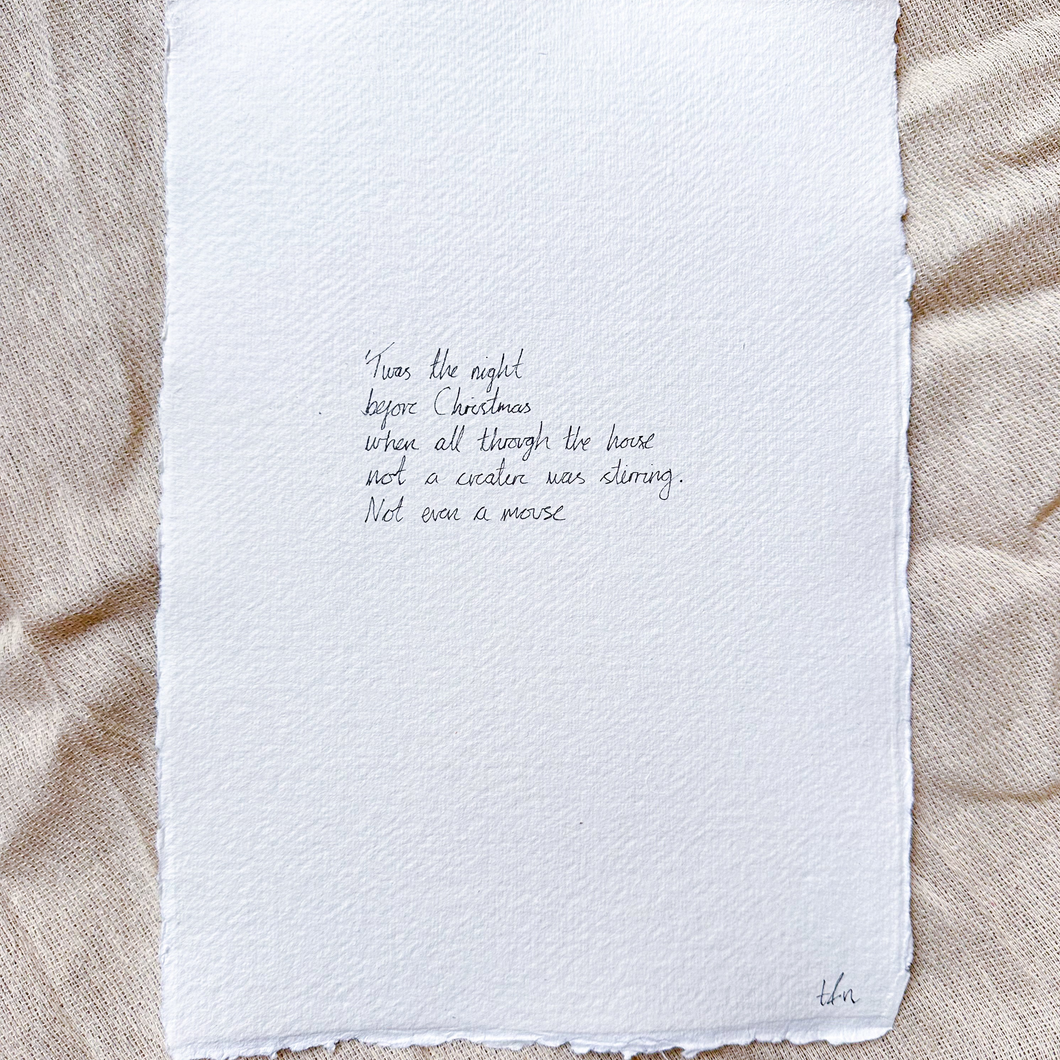 'Twas the night
before Christmas
when all through the house
not a creature was stirring.
Not even a mouse
tfn